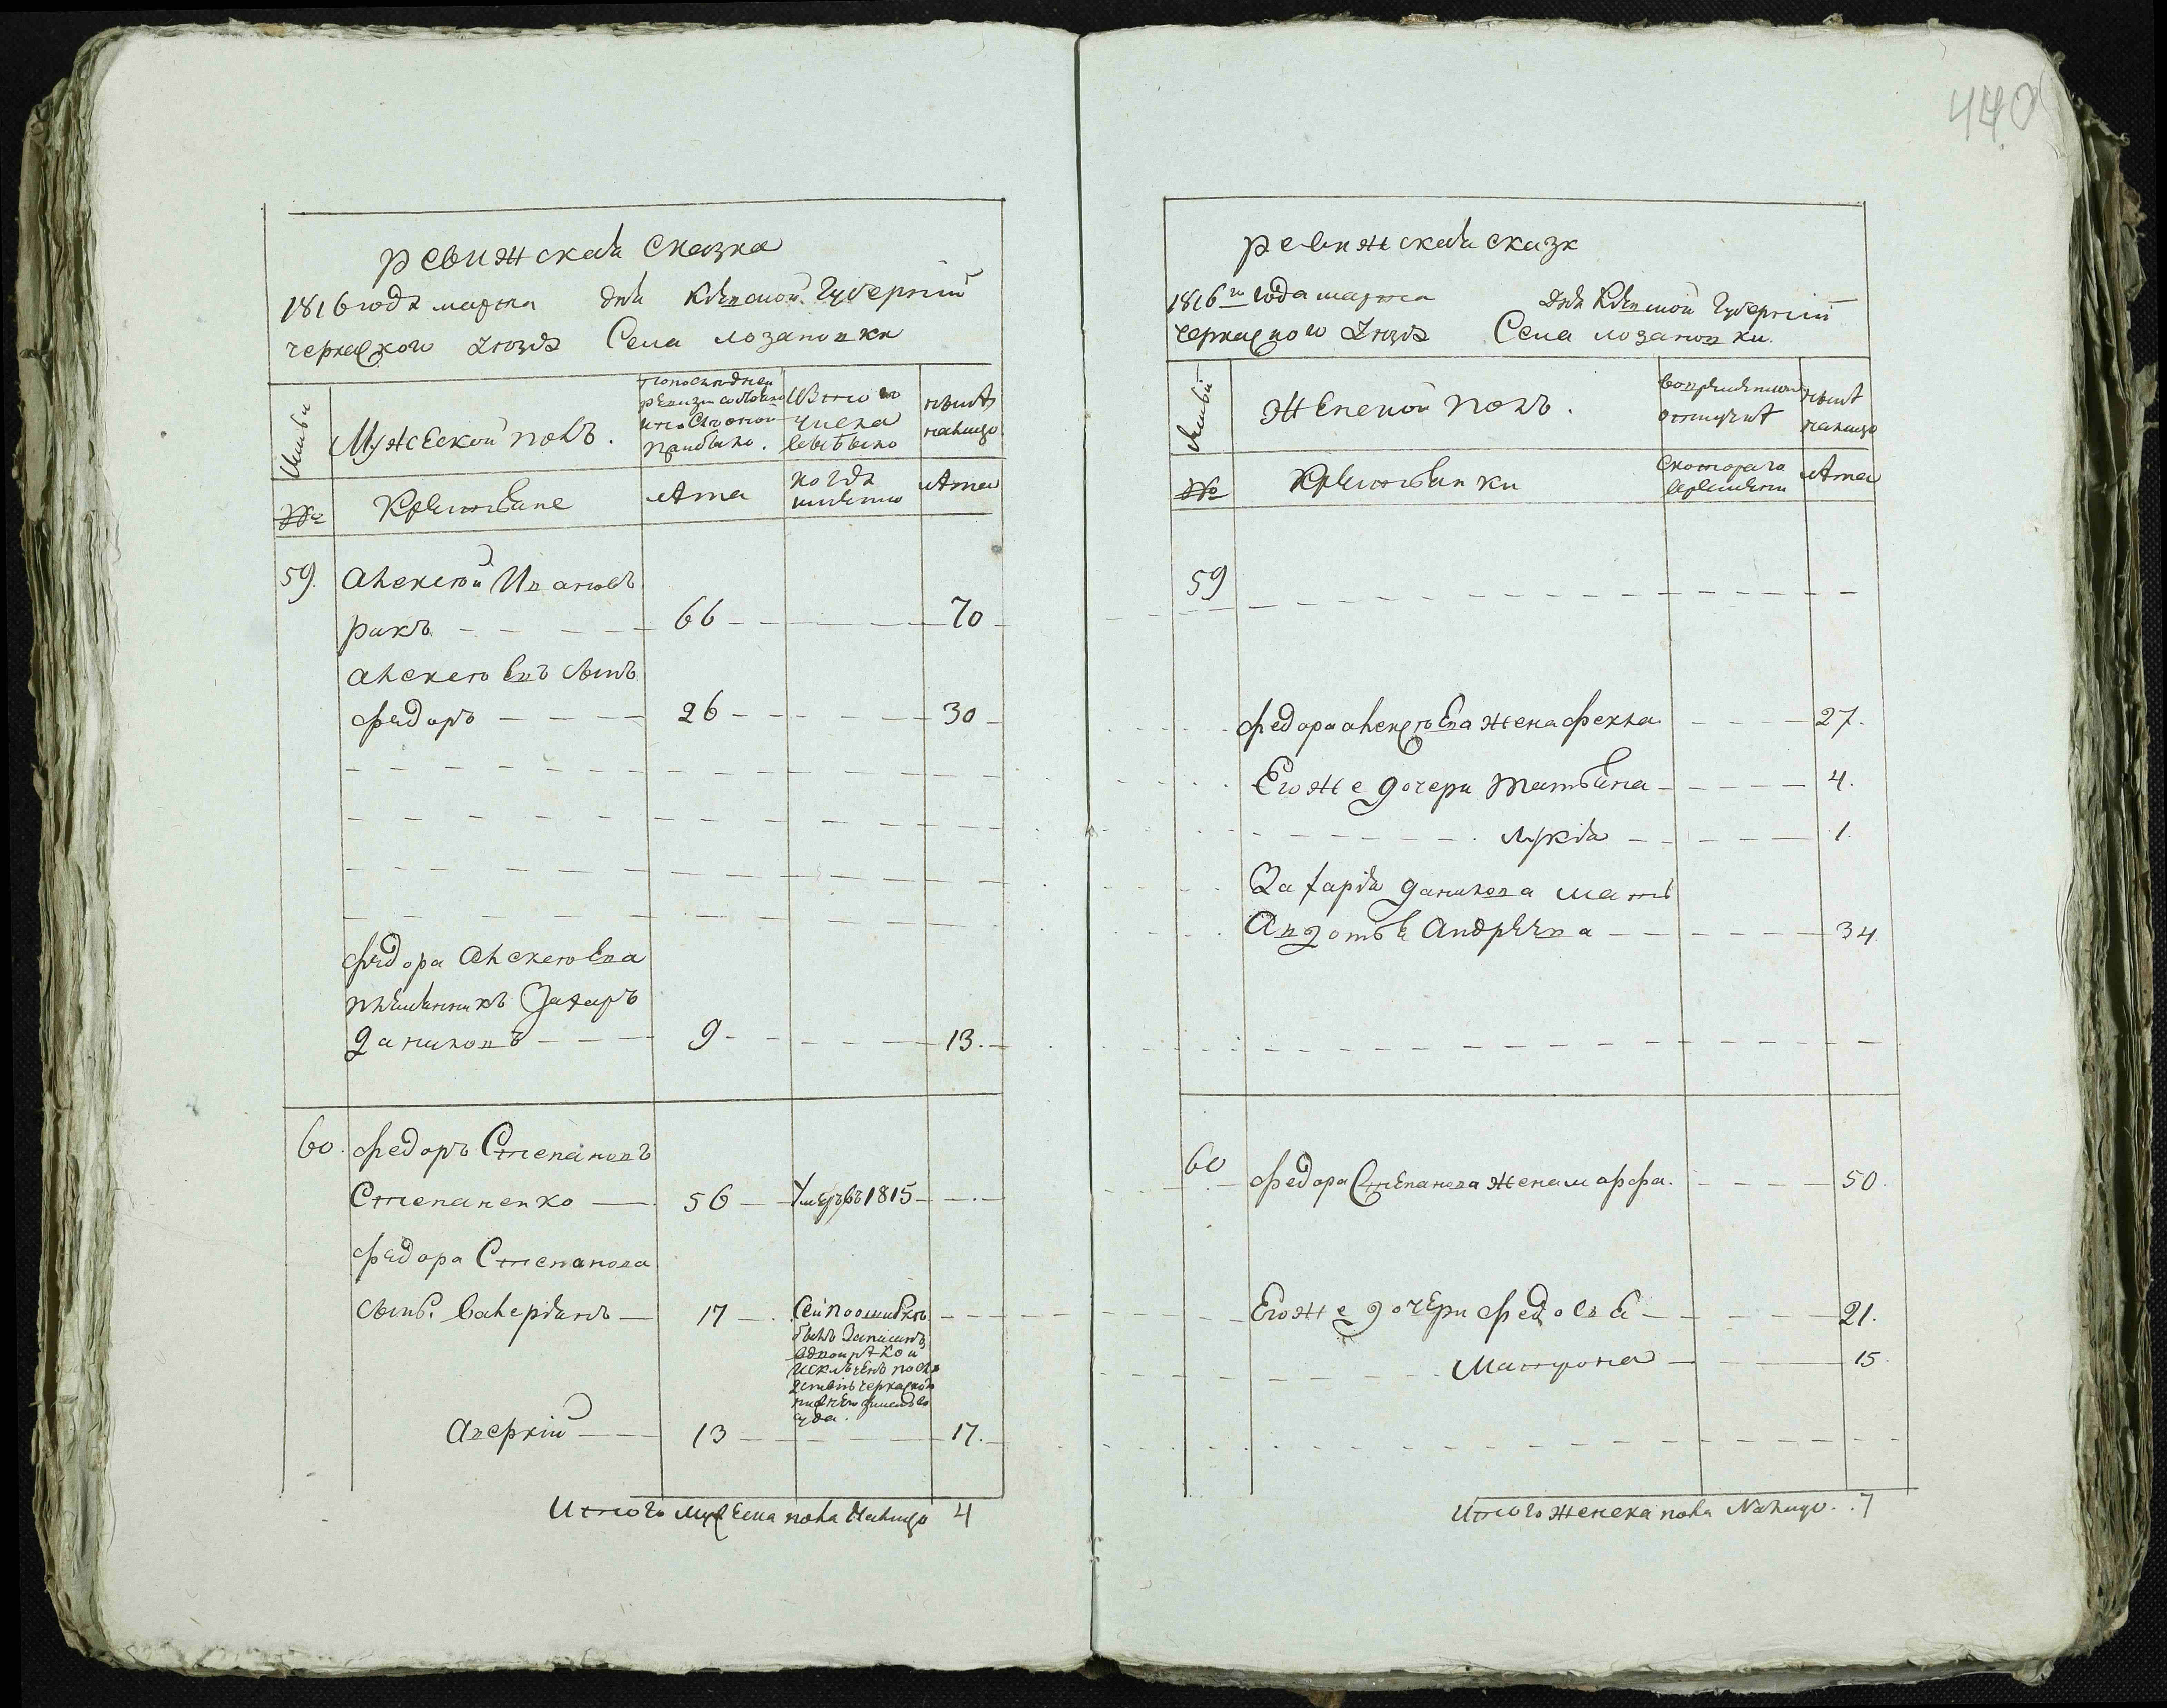 440
ревижская сказка
1816 года марта дня Киевской Губерніи
черкаского уюзда Села лозановки
Мужеской полъ.
по последней ревизіи состояло
ис того числа выбыло
ныне налицо
№
Крестьяне
лета
когда именно
лета
59. Алексей Ивановъ
ракъ 66 70
алексеевъ сынъ
федоръ 26 30
федора алексеева
племянникъ Захаръ
даниловъ 9 13.
60. федоръ Степановъ
Степаненко 56 Умеръ въ 1815
федора Степанова
сынъ. валеріянъ 17 Сей по ошибке
былъ записанъ
Аверкій 13 17.
Итого Мужеска пола Налицо 4
ревижская сказк
1816го года марта дня Киевской Губерніи
черкаского уюзда Села лозановки.
Женской полъ.
во временной отлучке
ныне налицо
№
Крестьянки
с которого времени
лета
59
федора алексеева жена фекла 27.
Егоже дочери татьяна 4.
лукія 1.
Захарія данилова мать
Авдотья Андреева 34
60 федора Степанова жена марфа. 50.
Егоже дочери федосья 21.
Матрона 15.
Итого женска пола Налицо. 7